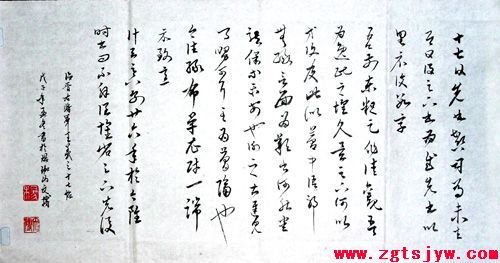 十七日先書郗司馬未去
即日得足下書為慰先書以
具示復數字
吾前東粗足作佳觀吾
為逸民之懷久矣足下何以
方復及此似夢中語耶
無緣言面為歎書何能悉
龍保等平安也謝之甚遲見
卿舅可早至為簡隔也
今往絲布單衣財一端
示致意
計與足下別廿六年於今雖
時書問不解闊懷省足下先後
臨晉右將軍王羲之十七帖
戊子年
www.zgtsjyw.com